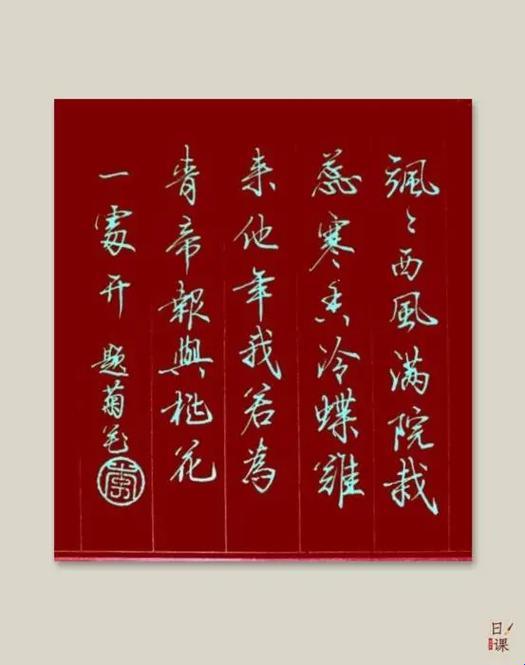 颯々西風满院栽
蕊寒香冷蝶難
来他年我若為
青帝報與桃花
一處开 题菊花
日课